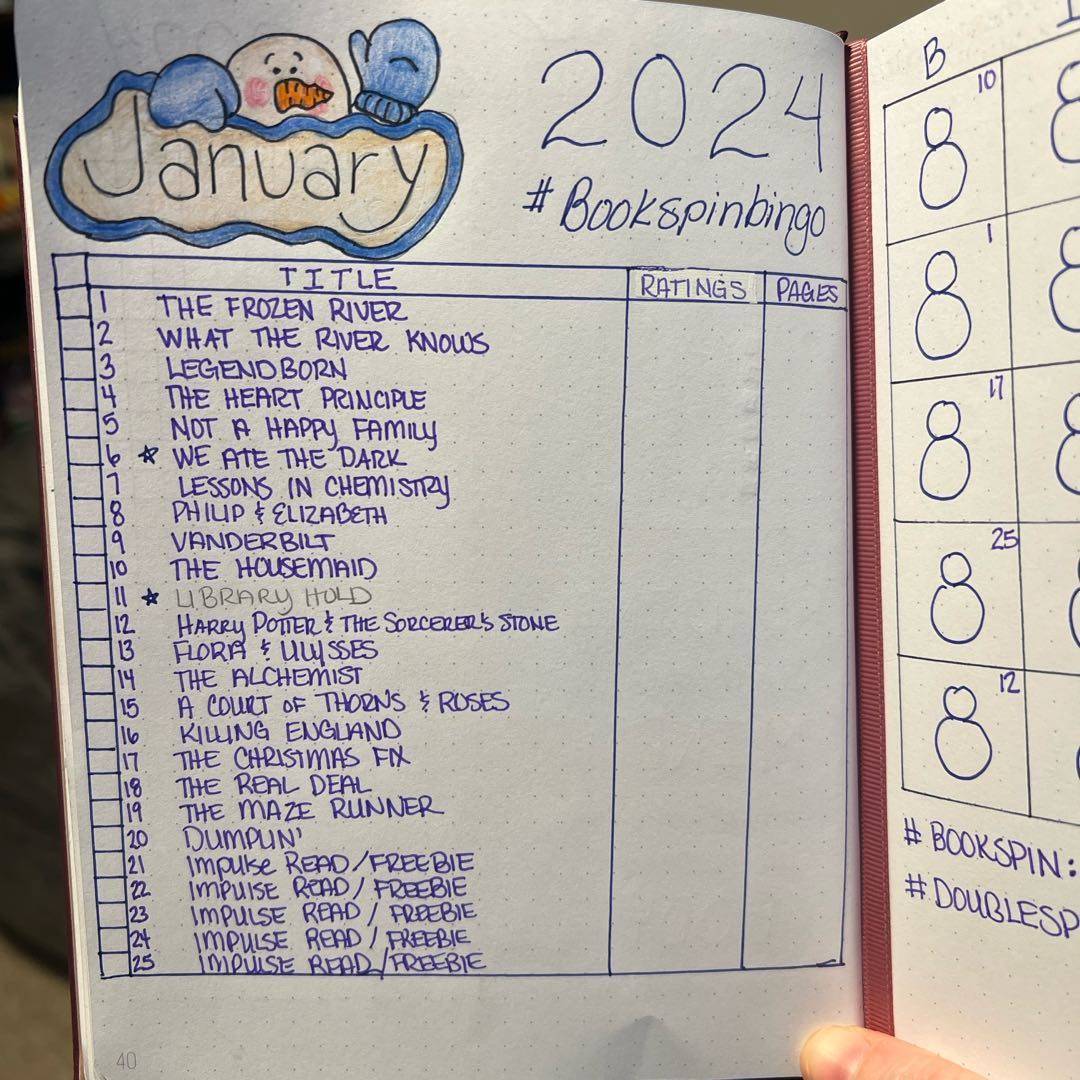 January
2024
#Bookspinbingo
TITLE RATINGS PAGES
1 THE FROZEN RIVER
2 WHAT THE RIVER KNOWS
3 LEGENDBORN
4 THE HEART PRINCIPLE
5 NOT A HAPPY FAMILY
6 ★ WE ATE THE DARK
7 LESSONS IN CHEMISTRY
8 PHILIP & ELIZABETH
9 VANDERBILT
10 THE HOUSEMAID
11 ★ LIBRARY HOLD
12 HARRY POTTER & THE SORCERER'S STONE
13 FLORA & ULYSSES
14 THE ALCHEMIST
15 A COURT OF THORNS & ROSES
16 KILLING ENGLAND
17 THE CHRISTMAS FIX
18 THE REAL DEAL
19 THE MAZE RUNNER
20 DUMPLIN'
21 IMPULSE READ/FREEBIE
22 IMPULSE READ/FREEBIE
23 IMPULSE READ/FREEBIE
24 IMPULSE READ/FREEBIE
25 IMPULSE READ/FREEBIE
40
B
10
1
17
25
12
#BOOKSPIN:
#DOUBLESP